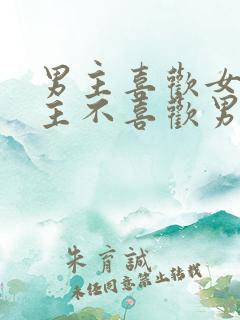 男主喜歡女
主不喜歡男
朱育誠
未任同意禁止转載